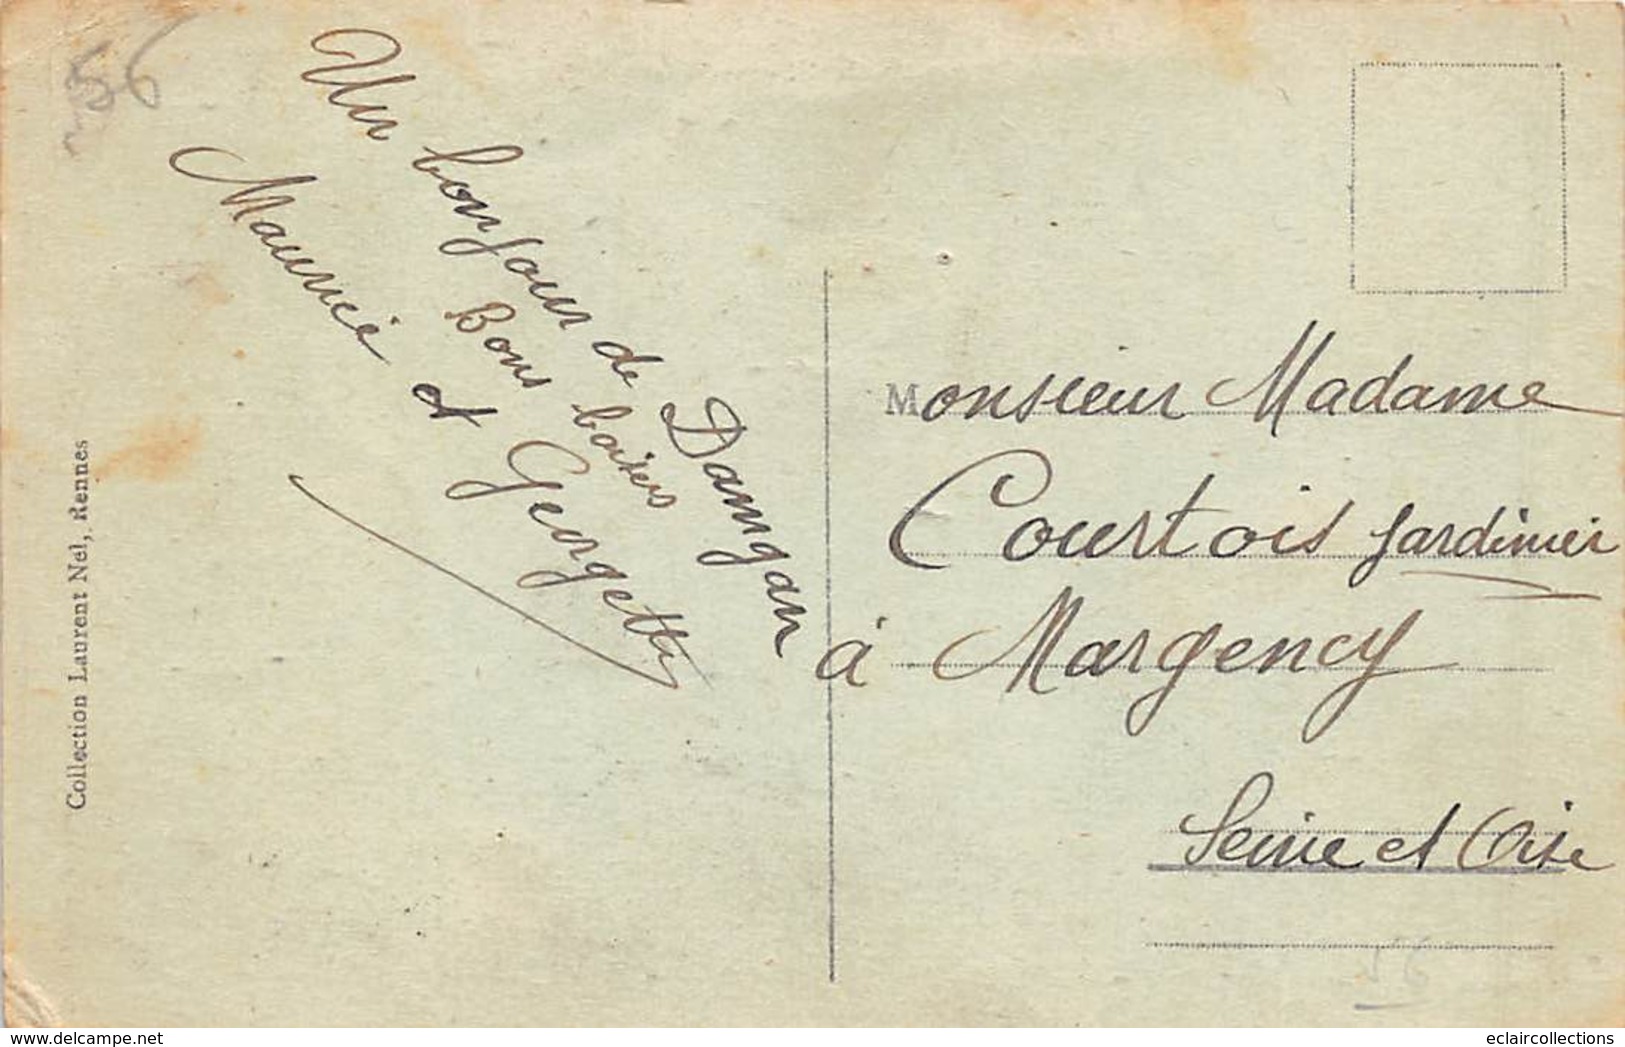 56
Un bonjour de Damgan
Bons baisers
Maurice et Georgette
Collection Laurent Nel, Rennes
Monsieur Madame
Courtois jardinier
à Margency
Seine et Oise
56
delcampe.net
eclaircollections